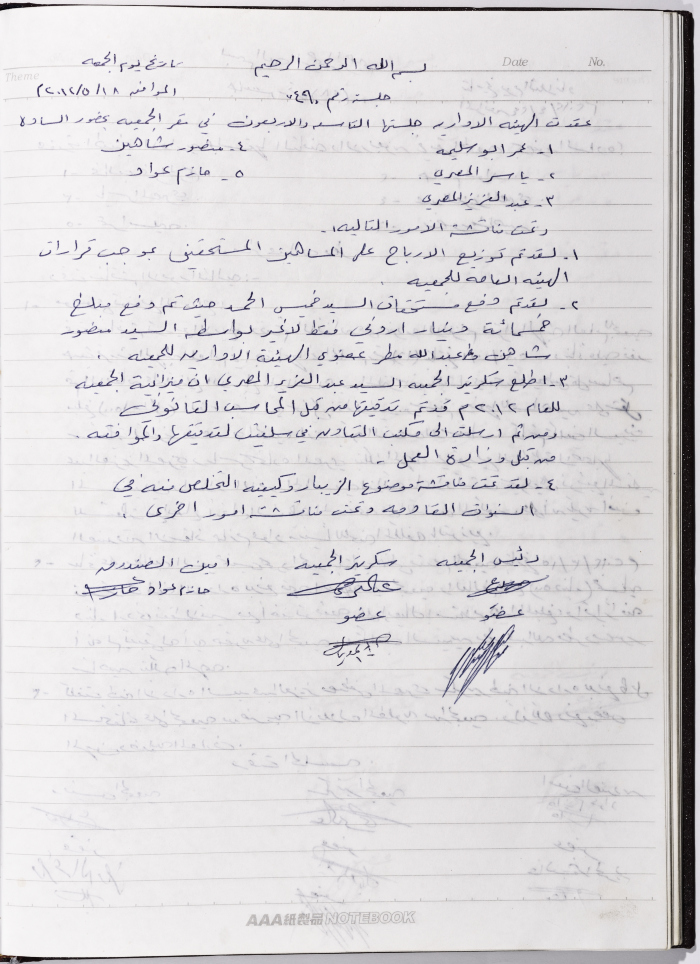 Theme Date No.
بسم الله الرحمن الرحيم تاريخ يوم الجمعه
جلسة رقم ٤٩ الموافق ١٨/٥/٢٠١٢م
عقدت الهيئه الاداريه جلستها التاسعه والاربعون في مقر الجمعيه بحضور الساده
١- عمر ابو سليمه ٤- منصور شاهين
٢- ياسر المصري ٥- حازم عواد
٣- عبد العزيز المصري
وتمت مناقشة الامور التاليه:
١- لقد تم توزيع الارباح على المساهمين المستحقين بموجب قرارات
الهيئه العامه للجمعيه .
٢- لقد تم دفع مستحقات السيد خميس الحمد حيث تم دفع مبلغ
خمسمائة دينار اردني فقط لاغير بواسطة السيد منصور
شاهين وعبد الله مطر عضوي الهيئة الاداريه للجمعيه .
٣- اطلع سكرتير الجمعيه السيد عبد العزيز المصري ان ميزانية الجمعيه
للعام ٢٠١٢م قد تم تدقيقها من قبل المحاسب القانوني
ومن ثم ارسلت الى مكتب التعاون في سلفيت لتدقيقها والموافقه
من قبل وزارة العمل .
٤- لقد تمت مناقشة موضوع الزيبار وكيفيه التخلص منه في
السنوات القادمه وتمت مناقشة امور اخرى .
رئيس الجمعيه سكرتير الجمعيه امين الصندوق
حازم عواد
عضو عضو
AAA紙製品NOTEBOOK